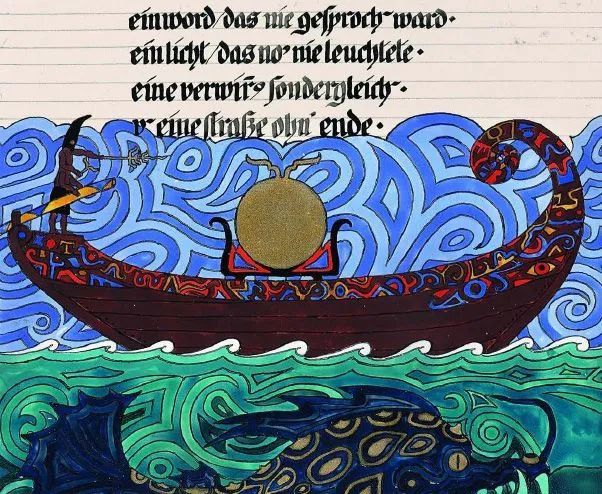 ein word/das nie gesproch' ward·
ein licht/das no' nie leuchtete·
eine verwirr̄g sondergleich'·
v' eine straße ohn' ende·